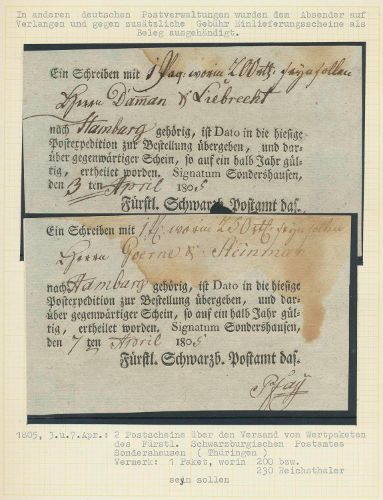 In anderen deutschen Postverwaltungen wurden dem Absender auf
Verlangen und gegen zusätzliche Gebühr Einlieferungsscheine als
Beleg ausgehändigt.
Ein Schreiben mit 1 Paq: worin 200 rtl: seyn sollen
Herrn Daman & Liebrecht
nach Hamburg gehörig, ist Dato in die hiesige
Postexpedition zur Bestellung übergeben, und dar-
über gegenwärtiger Schein, so auf ein halb Jahr gül-
tig, ertheilet worden. Signatum Sondershausen,
den 3 ten April 1805
Fürstl. Schwarzb. Postamt das.
Ein Schreiben mit 1 P. worin 230 rtl: seyn sollen
Herrn Goerne & Steinman
nach Hamburg gehörig, ist Dato in die hiesige
Postexpedition zur Bestellung übergeben, und dar-
über gegenwärtiger Schein, so auf ein halb Jahr gül-
tig, ertheilet worden. Signatum Sondershausen,
den 7 ten April 1805
Fürstl. Schwarzb. Postamt das-
1805, 3.u.7.Apr.: 2 Postscheine über den Versand von Wertpaketen
des Fürstl. Schwarzburgischen Postamtes
Sondershausen (Thüringen)
Vermerk: 1 Paket, worin 200 bzw.
230 Reichsthaler
seyn sollen